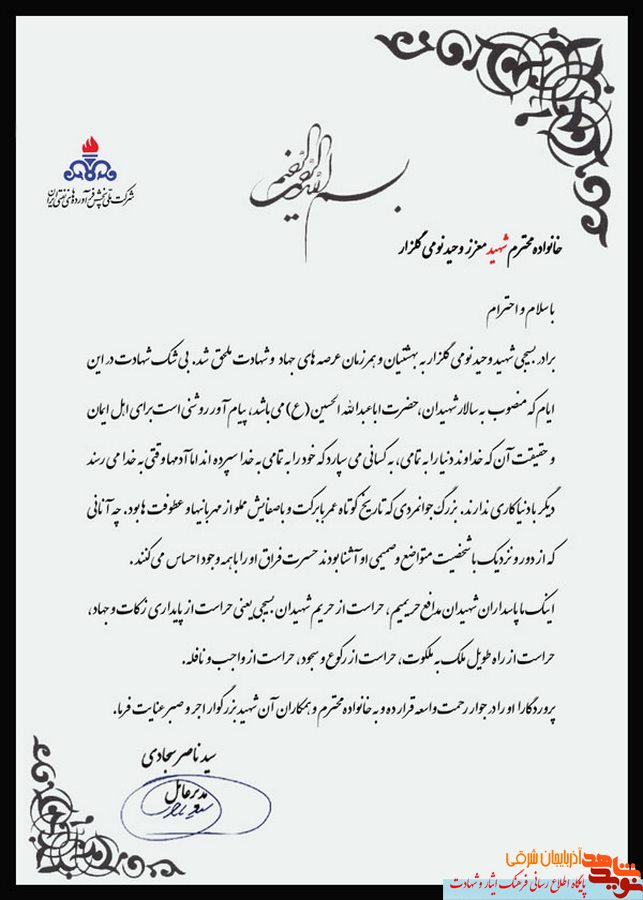 بسم الله الرحمن الرحیم
شرکت ملی پخش فرآورده های نفتی ایران
خانواده محترم شهید معزز وحید نومی گلزار
با سلام و احترام
برادر بسیجی شهید وحید نومی گلزار به بهشتیان و همرزمان عرصه های جهاد و شهادت ملحق شد. بی شک شهادت در این
ایام که منصوب به سالار شهیدان، حضرت اباعبدالله الحسین (ع) می باشد، پیام آور روشنی است برای اهل ایمان
و حقیقت آن که خداوند دنیا را به تمامی، به کسانی می سپارد که خود را به تمامی به خدا سپرده اند اما آدمها وقتی به خدا می رسند
دیگر با دنیا کاری ندارند. بزرگ جوانمردی که تاریخ کوتاه عمر بابرکت و باصفایش مملو از مهربانیها و عطوفت ها بود. چه آنانی
که از دور و نزدیک با شخصیت متواضع و صمیمی او آشنا بودند حسرت فراق او را با همه وجود احساس می کنند.
اینک ما پاسداران شهیدان مدافع حریمیم، حراست از حریم شهیدان بسیجی یعنی حراست از پایداری زکات و جهاد،
حراست از راه طویل ملک به ملکوت، حراست از رکوع و سجود، حراست از واجب و نافله.
پروردگارا او را در جوار رحمت واسعه قرار ده و به خانواده محترم و همکاران آن شهید بزرگوار اجر و صبر عنایت فرما.
سید ناصر سجادی
مدیرعامل
نوید شاهد آذربایجان شرقی
پایگاه اطلاع رسانی فرهنگ ایثار و شهادت